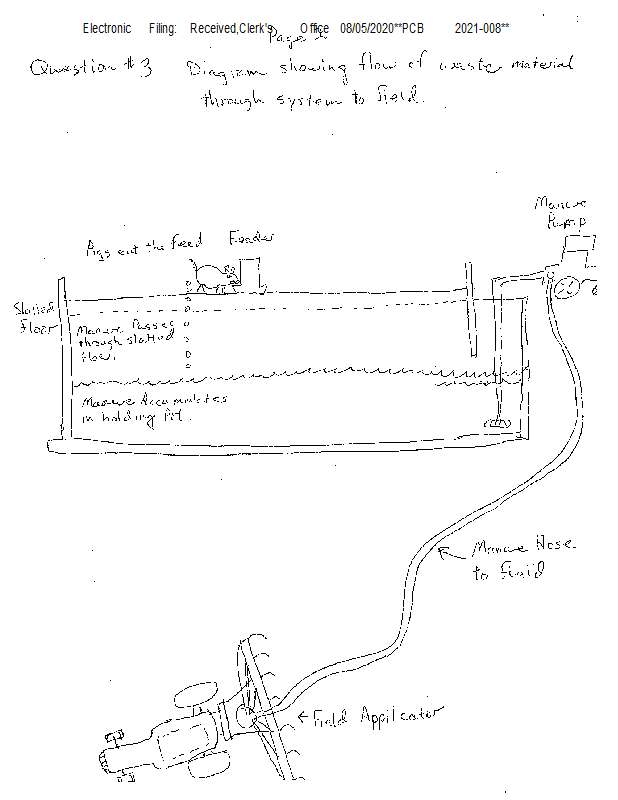 Electronic Filing: Received, Clerk's Office 08/05/2020**PCB 2021-008**
Page 1
Question #3 Diagram showing flow of waste material
through system to field.
Manure
Pump
Pigs eat the feed Feeder
Slatted
floor
Manure Passes
through slatted
floor.
Manure Accumulates
in holding Pit.
Manure Hose
to Field
← Field Applicator